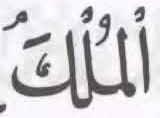 الْمُلْكَُ